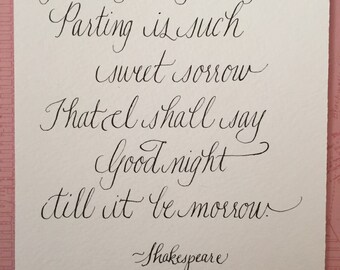 Parting is such
sweet sorrow
That I shall say
Good night
till it be morrow.
~Shakespeare